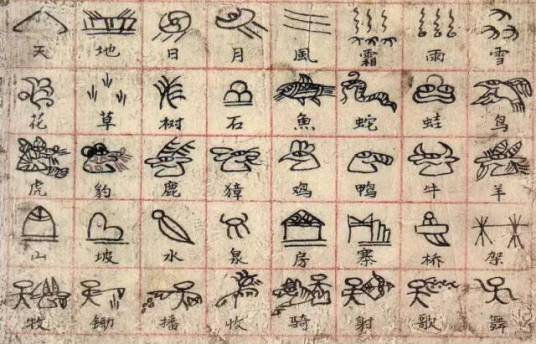 天 地 日 月 風 霜 雨 雪
花 草 树 石 魚 蛇 蛙 鸟
虎 豹 鹿 獐 鸡 鸭 牛 羊
山 坡 水 泉 房 寨 桥 架
牧 鋤 播 收 骑 射 歌 舞